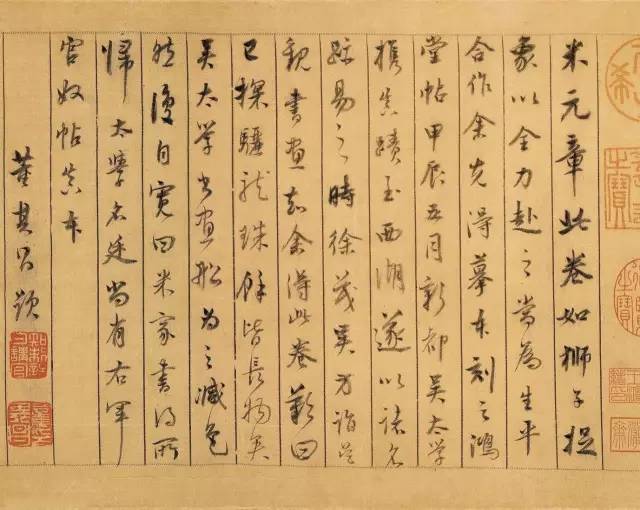 米元章此卷如獅子捉
象以全力赴之當為生平
合作余先得摹本刻之鴻
堂帖甲辰五月新都吳太學
攜真蹟至西湖遂以諸名
跡易之時徐茂吳方詣吳
觀書畫知余得此卷歎曰
已探驪龍珠餘皆長物矣
吳太學書畫船為之減色
然後自寬曰米家書得所
歸太學名廷尚有右軍
官奴帖真本
董其昌題
知制誥日講官